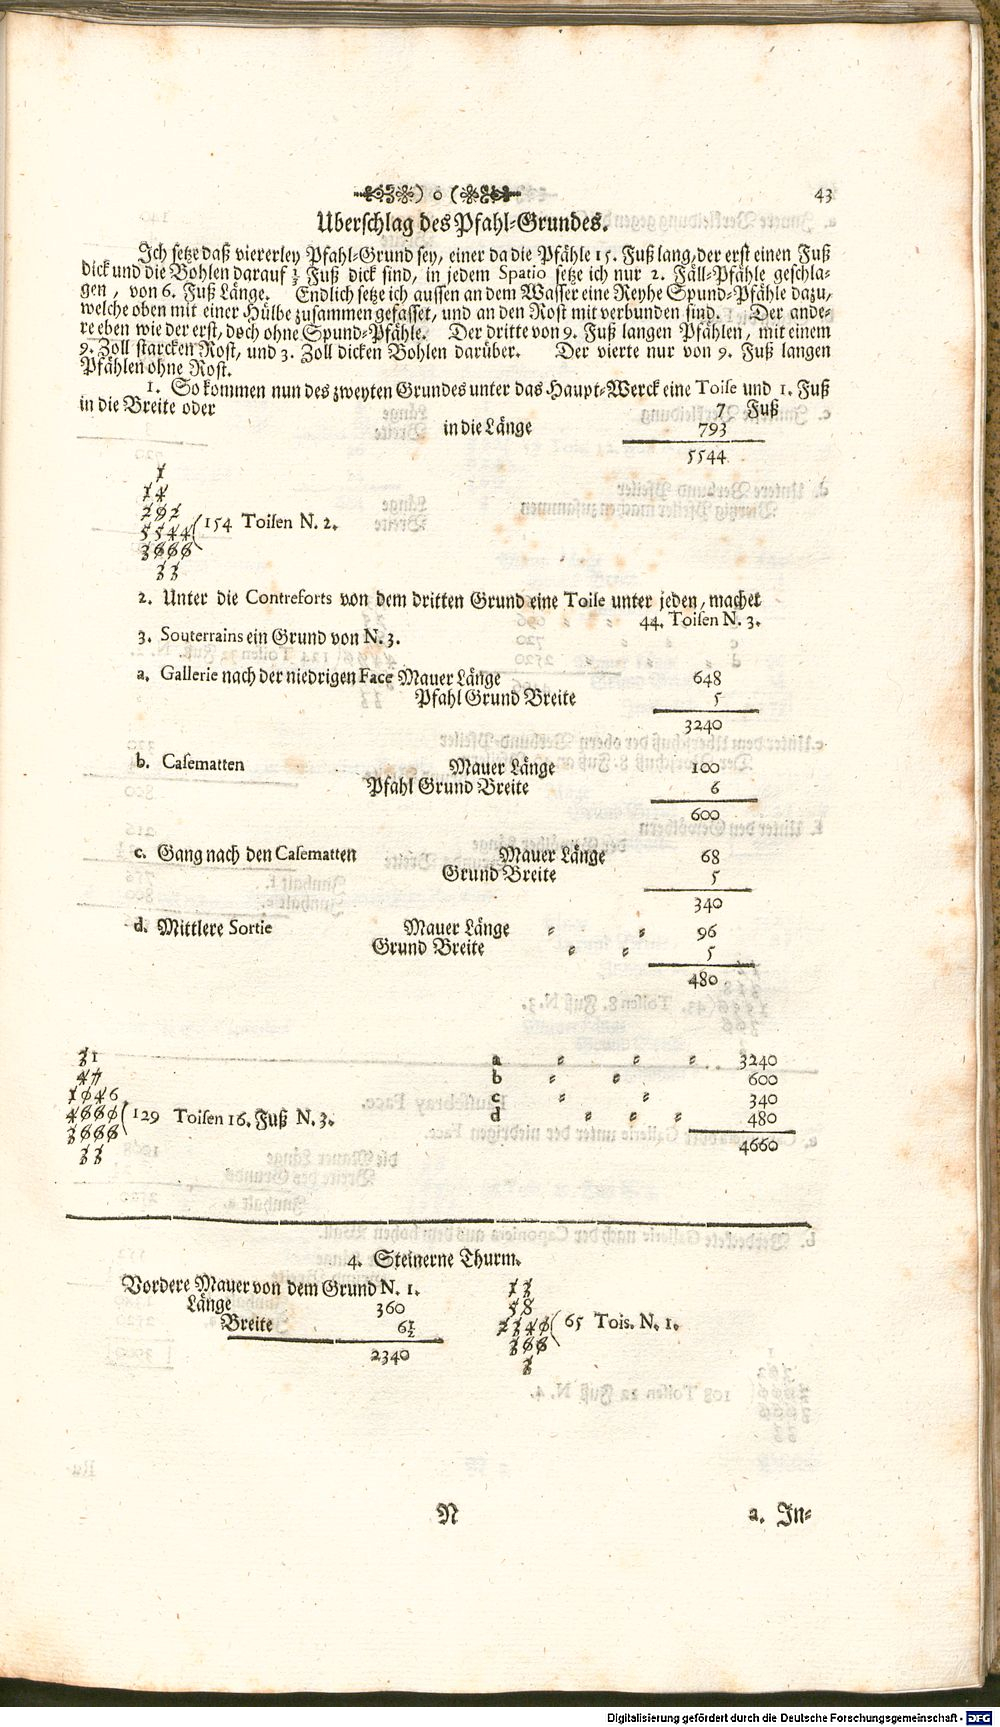 ) o (
43
Uberschlag des Pfahl-Grundes.
Ich setze daß viererley Pfahl-Grund sey, einer da die Pfähle 15. Fuß lang, der erst einen Fuß
dick und die Bohlen darauf ½ Fuß dick sind, in jedem Spatio setze ich nur 2. Fäll-Pfähle geschla-
gen, von 6. Fuß Länge. Endlich setze ich aussen an dem Wasser eine Reyhe Spund-Pfähle dazu,
welche oben mit einer Hülbe zusammen gefasset, und an den Rost mit verbunden sind. Der ande-
re eben wie der erst, doch ohne Spund-Pfähle. Der dritte von 9. Fuß langen Pfählen, mit einem
9. Zoll starcken Rost, und 3. Zoll dicken Bohlen darüber. Der vierte nur von 9. Fuß langen
Pfählen ohne Rost.
1. So kommen nun des zweyten Grundes unter das Haupt-Werck eine Toise und 1. Fuß
in die Breite oder 7 Fuß
in die Länge 793
5544
1
14
292
5544(154 Toisen N. 2.
3888
33
2. Unter die Contreforts von dem dritten Grund eine Toise unter jeden, machet
44. Toisen N. 3.
3. Souterrains ein Grund von N. 3.
a. Gallerie nach der niedrigen Face Mauer Länge 648
Pfahl Grund Breite 5
3240
b. Casematten Mauer Länge 100
Pfahl Grund Breite 6
600
c. Gang nach den Casematten Mauer Länge 68
Grund Breite 5
340
d. Mittlere Sortie Mauer Länge = = 96
Grund Breite = = 5
480
31
47
1046
a = = = 3240
b = = 600
c = = 340
d = = = 480
4660
(129 Toisen 16. Fuß N. 3.
3888
33
4. Steinerne Thurm.
Vordere Mauer von dem Grund N. 1.
Länge 360
Breite 6½
2340
13
58
2340(65 Tois. N. 1.
388
3
N
a. In=
Digitalisierung gefördert durch die Deutsche Forschungsgemeinschaft - DFG